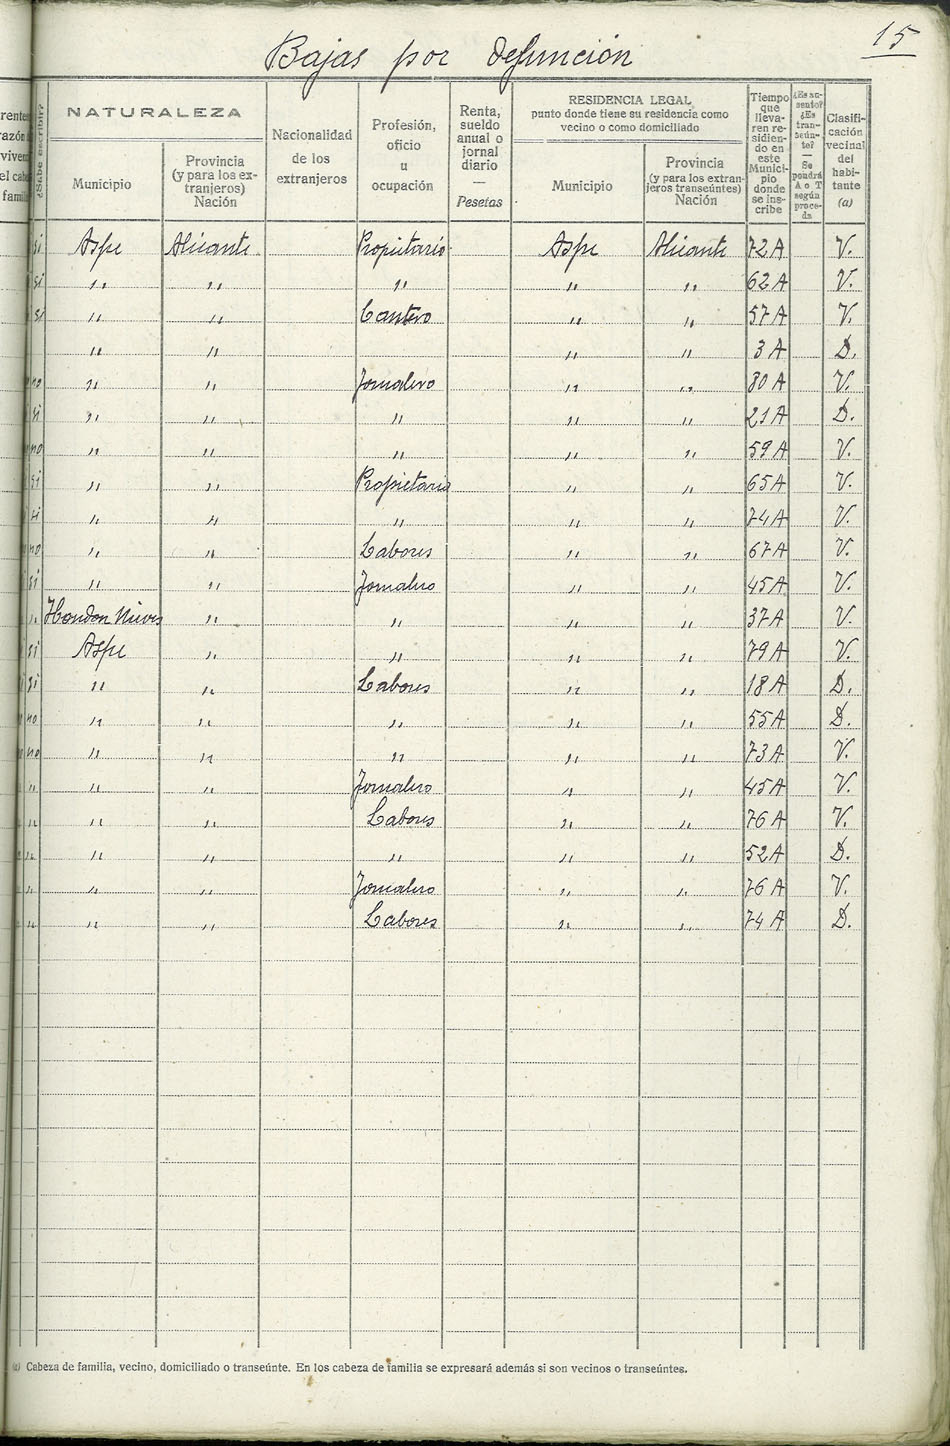 15
Bajas por defunción
NATURALEZA
Municipio
Provincia
(y para los ex-
tranjeros)
Nación
Nacionalidad
de los
extranjeros
Profesión,
oficio
u
ocupación
Renta,
sueldo
anual o
jornal
diario
—
Pesetas
RESIDENCIA LEGAL
punto donde tiene su residencia como
vecino o como domiciliado
Municipio
Provincia
(y para los extran-
jeros transeúntes)
Nación
Tiempo
que
lleva-
ren re-
sidien-
do en
este
Munici-
pio
donde
se ins-
cribe
¿Es au-
sente?
¿Es
tran-
seún-
te?
—
Se
pondrá
A o T
según
proce-
da
Clasifi-
cación
vecinal
del
habi-
tante
(a)
¿Sabe escribir?
si Aspe Alicante Propietario Aspe Alicante 72 A V.
si " " " " " 62 A V.
si " " Cantero " " 57 A V.
" " " " 3 A D.
no " " Jornalero " " 80 A V.
si " " " " " 21 A D.
no " " " " " 59 A V.
si " " Propietario " " 65 A V.
si " " " " " 74 A V.
no " " Labores " " 67 A V.
si " " Jornalero " " 45 A V.
" Hondon Nieves " " " " 37 A V.
si Aspe " " " " 79 A V.
si " " Labores " " 18 A D.
no " " " " " 55 A D.
no " " " " " 73 A V.
" " " Jornalero " " 45 A V.
" " " Labores " " 76 A V.
" " " " " " 52 A D.
" " " Jornalero " " 76 A V.
" " " Labores " " 74 A D.
(a) Cabeza de familia, vecino, domiciliado o transeúnte. En los cabeza de familia se expresará además si son vecinos o transeúntes.